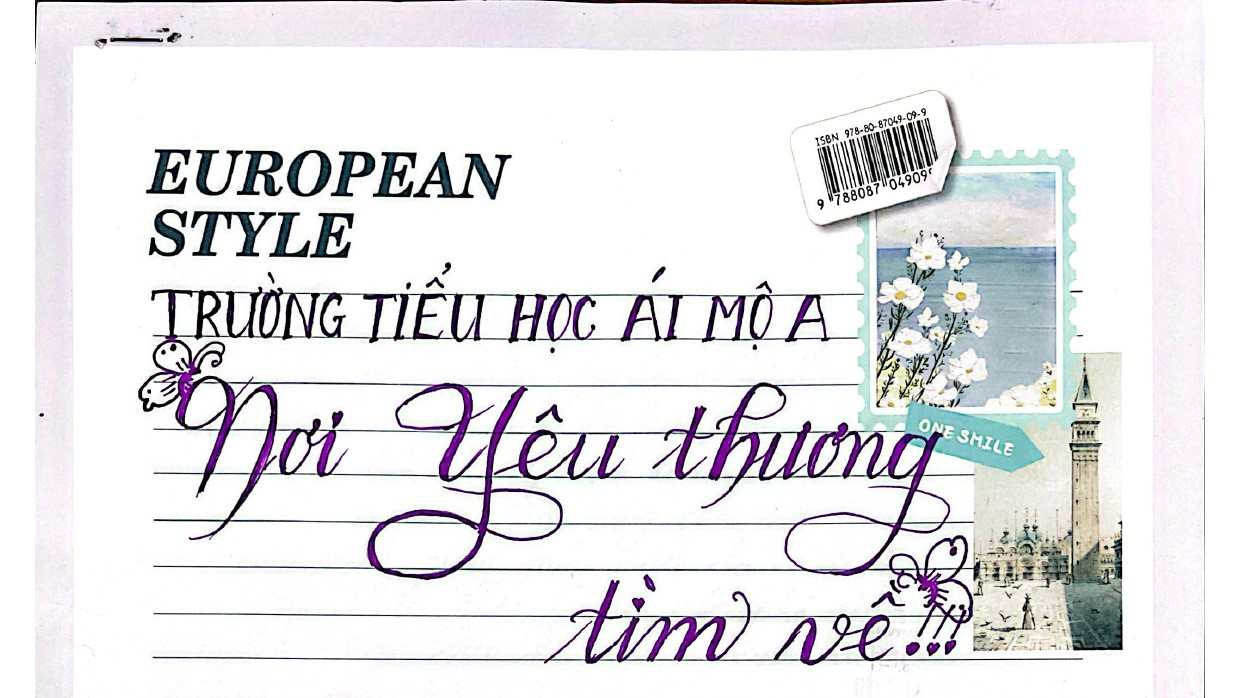 EUROPEAN
STYLE
ISBN 978-80-87049-09-9
9 788087 04909
TRƯỜNG TIỂU HỌC ÁI MỘ A
Nơi Yêu thương
ONE SMILE
tìm về!!!